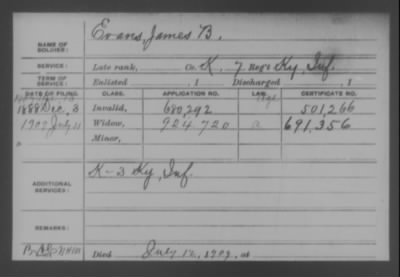 NAME OF SOLDIER: Evans, James B.
SERVICE: Late rank, Co. K, 7 Reg't Ky. Inf.
TERM OF SERVICE: Enlisted , 1 Discharged , 1
DATE OF FILING. CLASS. APPLICATION NO. LAW. CERTIFICATE NO.
1888 Dec. 3 Invalid, 680,292 501,266
1909 July 21 Widow, 924,720 a 691,356
Minor,
ADDITIONAL SERVICES: K-3 Ky. Inf.
REMARKS:
Died July 12, 1909, at